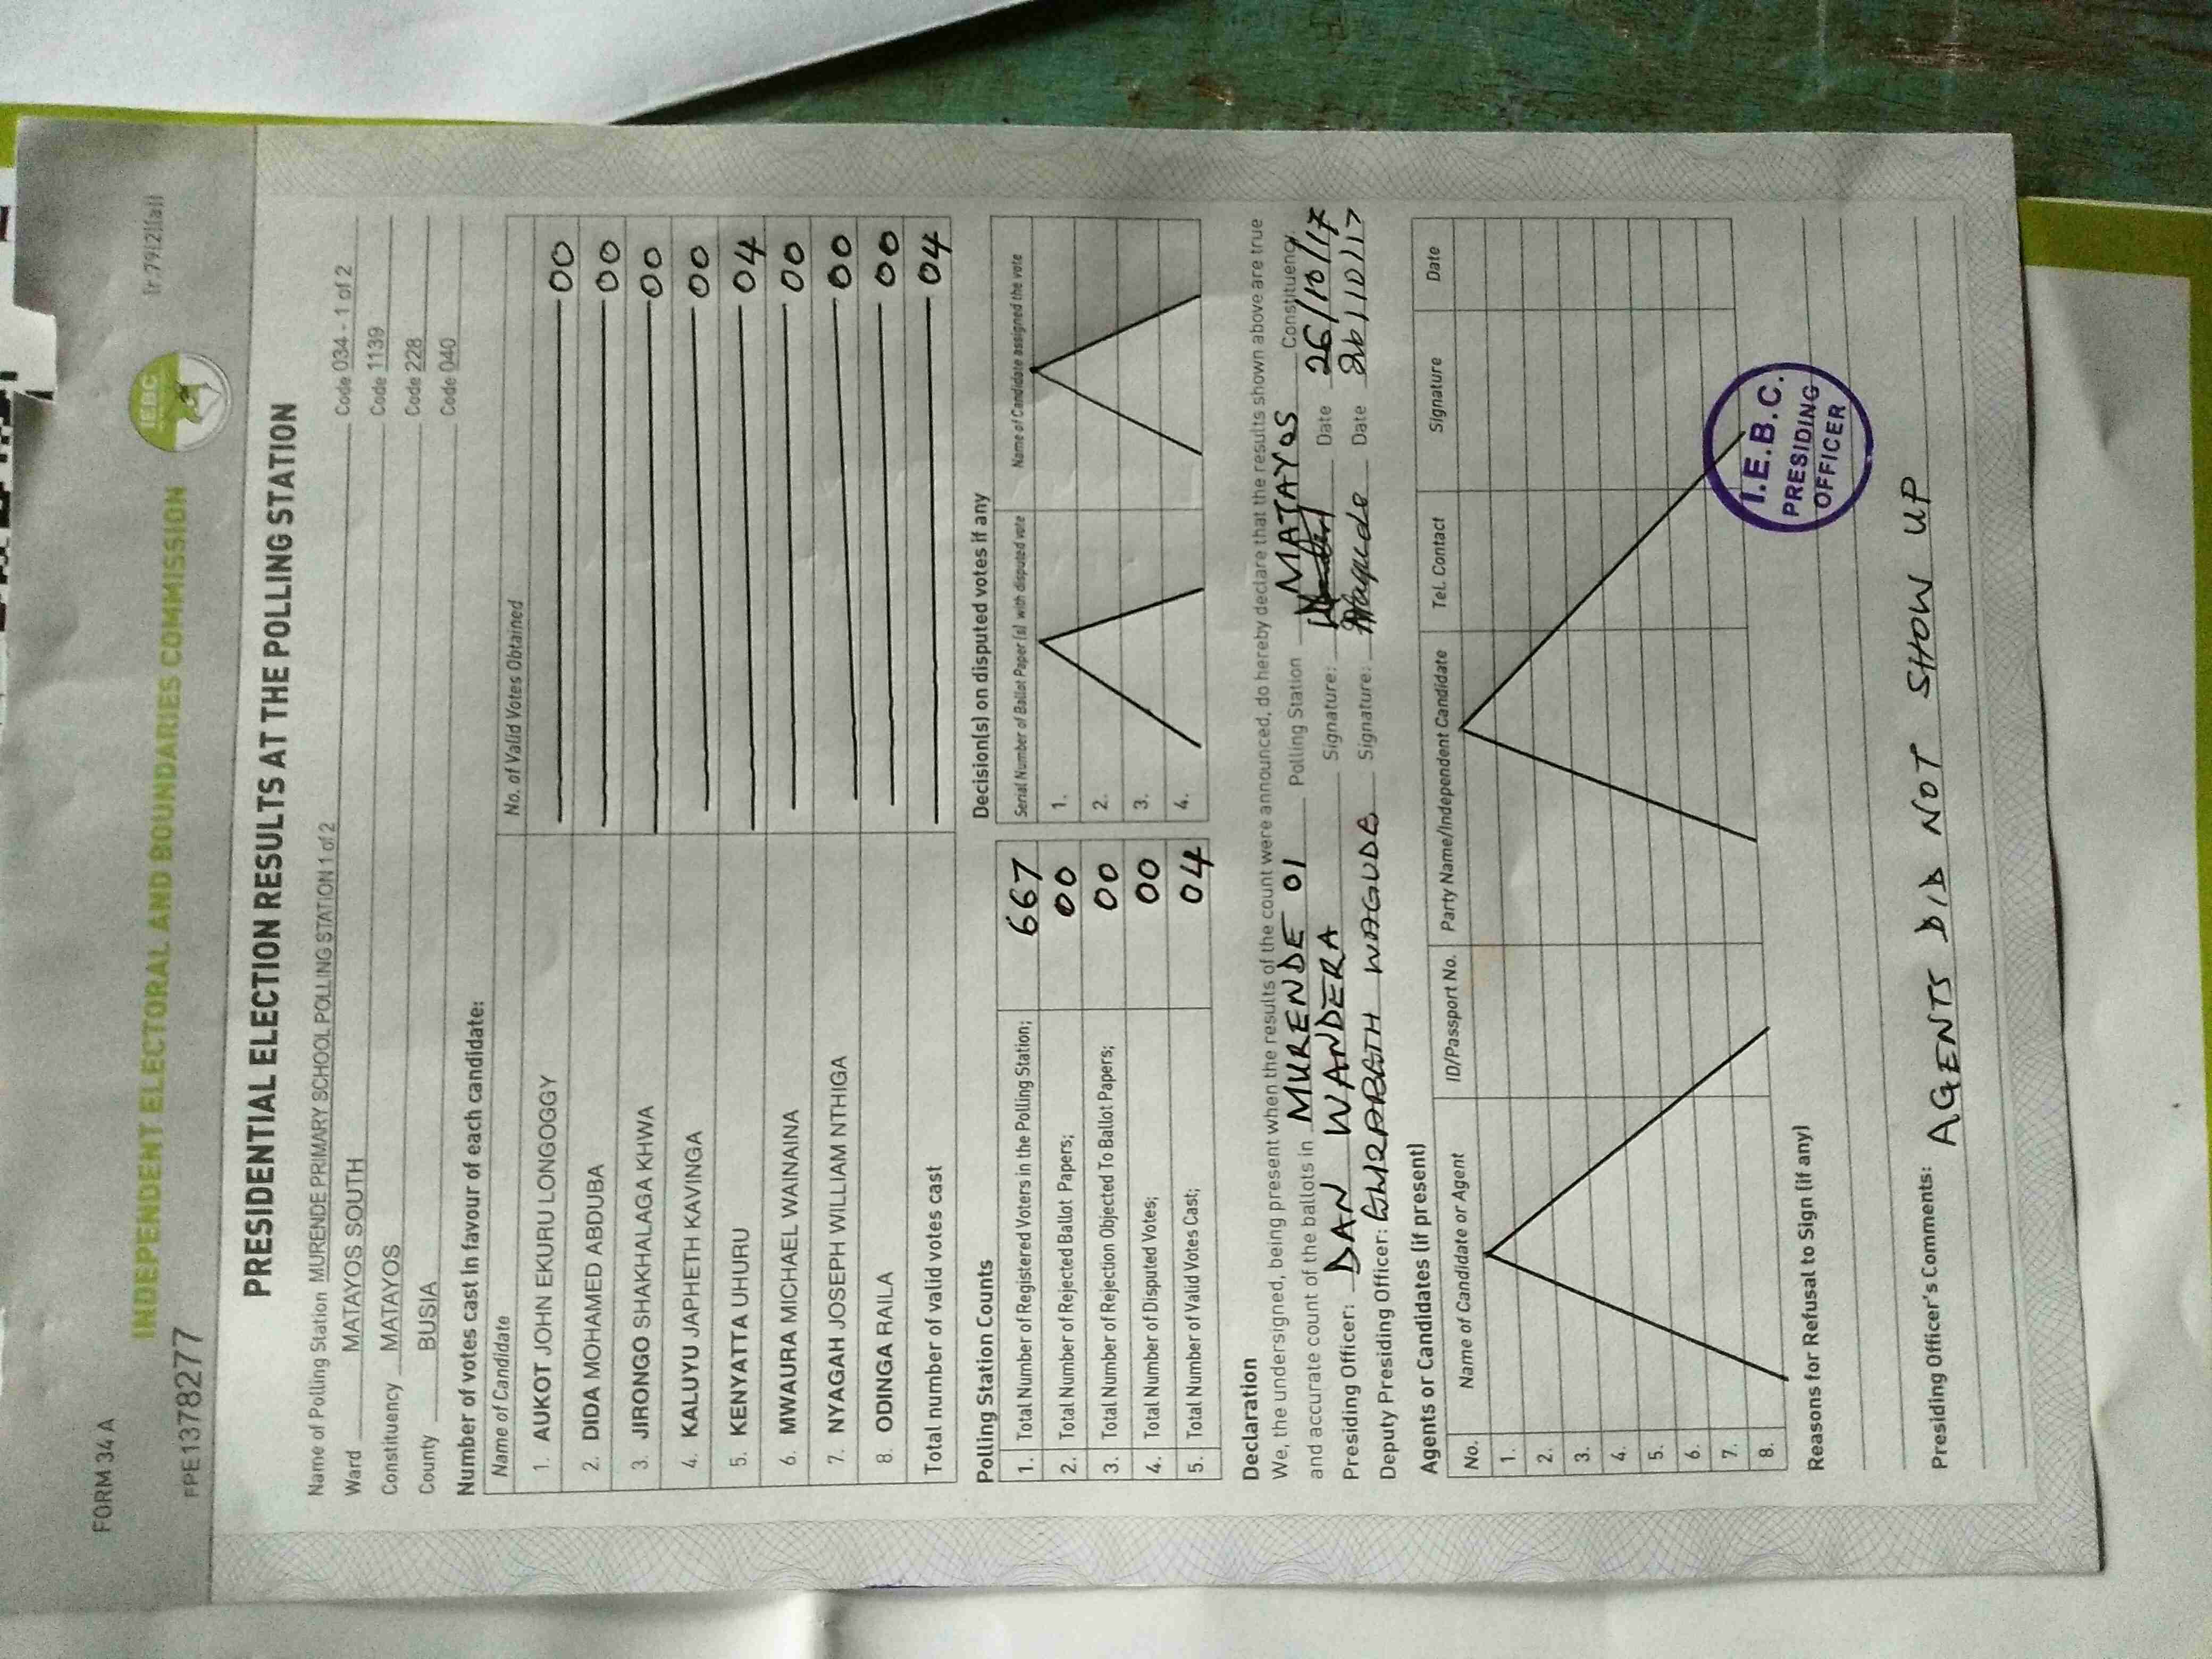 FORM 34 A
(r.79(2)(a))
INDEPENDENT ELECTORAL AND BOUNDARIES COMMISSION
IEBC
FPE1378277
PRESIDENTIAL ELECTION RESULTS AT THE POLLING STATION
Name of Polling Station MURENDE PRIMARY SCHOOL POLLING STATION 1 of 2 Code 034 - 1 of 2
Ward MATAYOS SOUTH Code 1139
Constituency MATAYOS Code 228
County BUSIA Code 040
Number of votes cast in favour of each candidate:
Name of Candidate No. of Valid Votes Obtained
1. AUKOT JOHN EKURU LONGOGGY 00
2. DIDA MOHAMED ABDUBA 00
3. JIRONGO SHAKHALAGA KHWA 00
4. KALUYU JAPHETH KAVINGA 00
5. KENYATTA UHURU 04
6. MWAURA MICHAEL WAINAINA 00
7. NYAGAH JOSEPH WILLIAM NTHIGA 00
8. ODINGA RAILA 00
Total number of valid votes cast 04
Polling Station Counts
1. Total Number of Registered Voters in the Polling Station; 667
2. Total Number of Rejected Ballot Papers; 00
3. Total Number of Rejection Objected To Ballot Papers; 00
4. Total Number of Disputed Votes; 00
5. Total Number of Valid Votes Cast; 04
Decision(s) on disputed votes if any
Serial Number of Ballot Paper (s) with disputed vote Name of Candidate assigned the vote
1.
2.
3.
4.
Declaration
We, the undersigned, being present when the results of the count were announced, do hereby declare that the results shown above are true
and accurate count of the ballots in MURENDE 01 Polling Station MATAYOS Constituency.
Presiding Officer: DAN WANDERA Signature: Date 26/10/17
Deputy Presiding Officer: WAGUDE Signature: Wagude Date 26/10/17
Agents or Candidates (if present)
No. Name of Candidate or Agent ID/Passport No. Party Name/Independent Candidate Tel. Contact Signature Date
1.
2.
3.
4.
5.
6.
7.
8.
I.E.B.C.
PRESIDING
OFFICER
Reasons for Refusal to Sign (if any)
Presiding Officer's Comments: AGENTS DID NOT SHOW UP